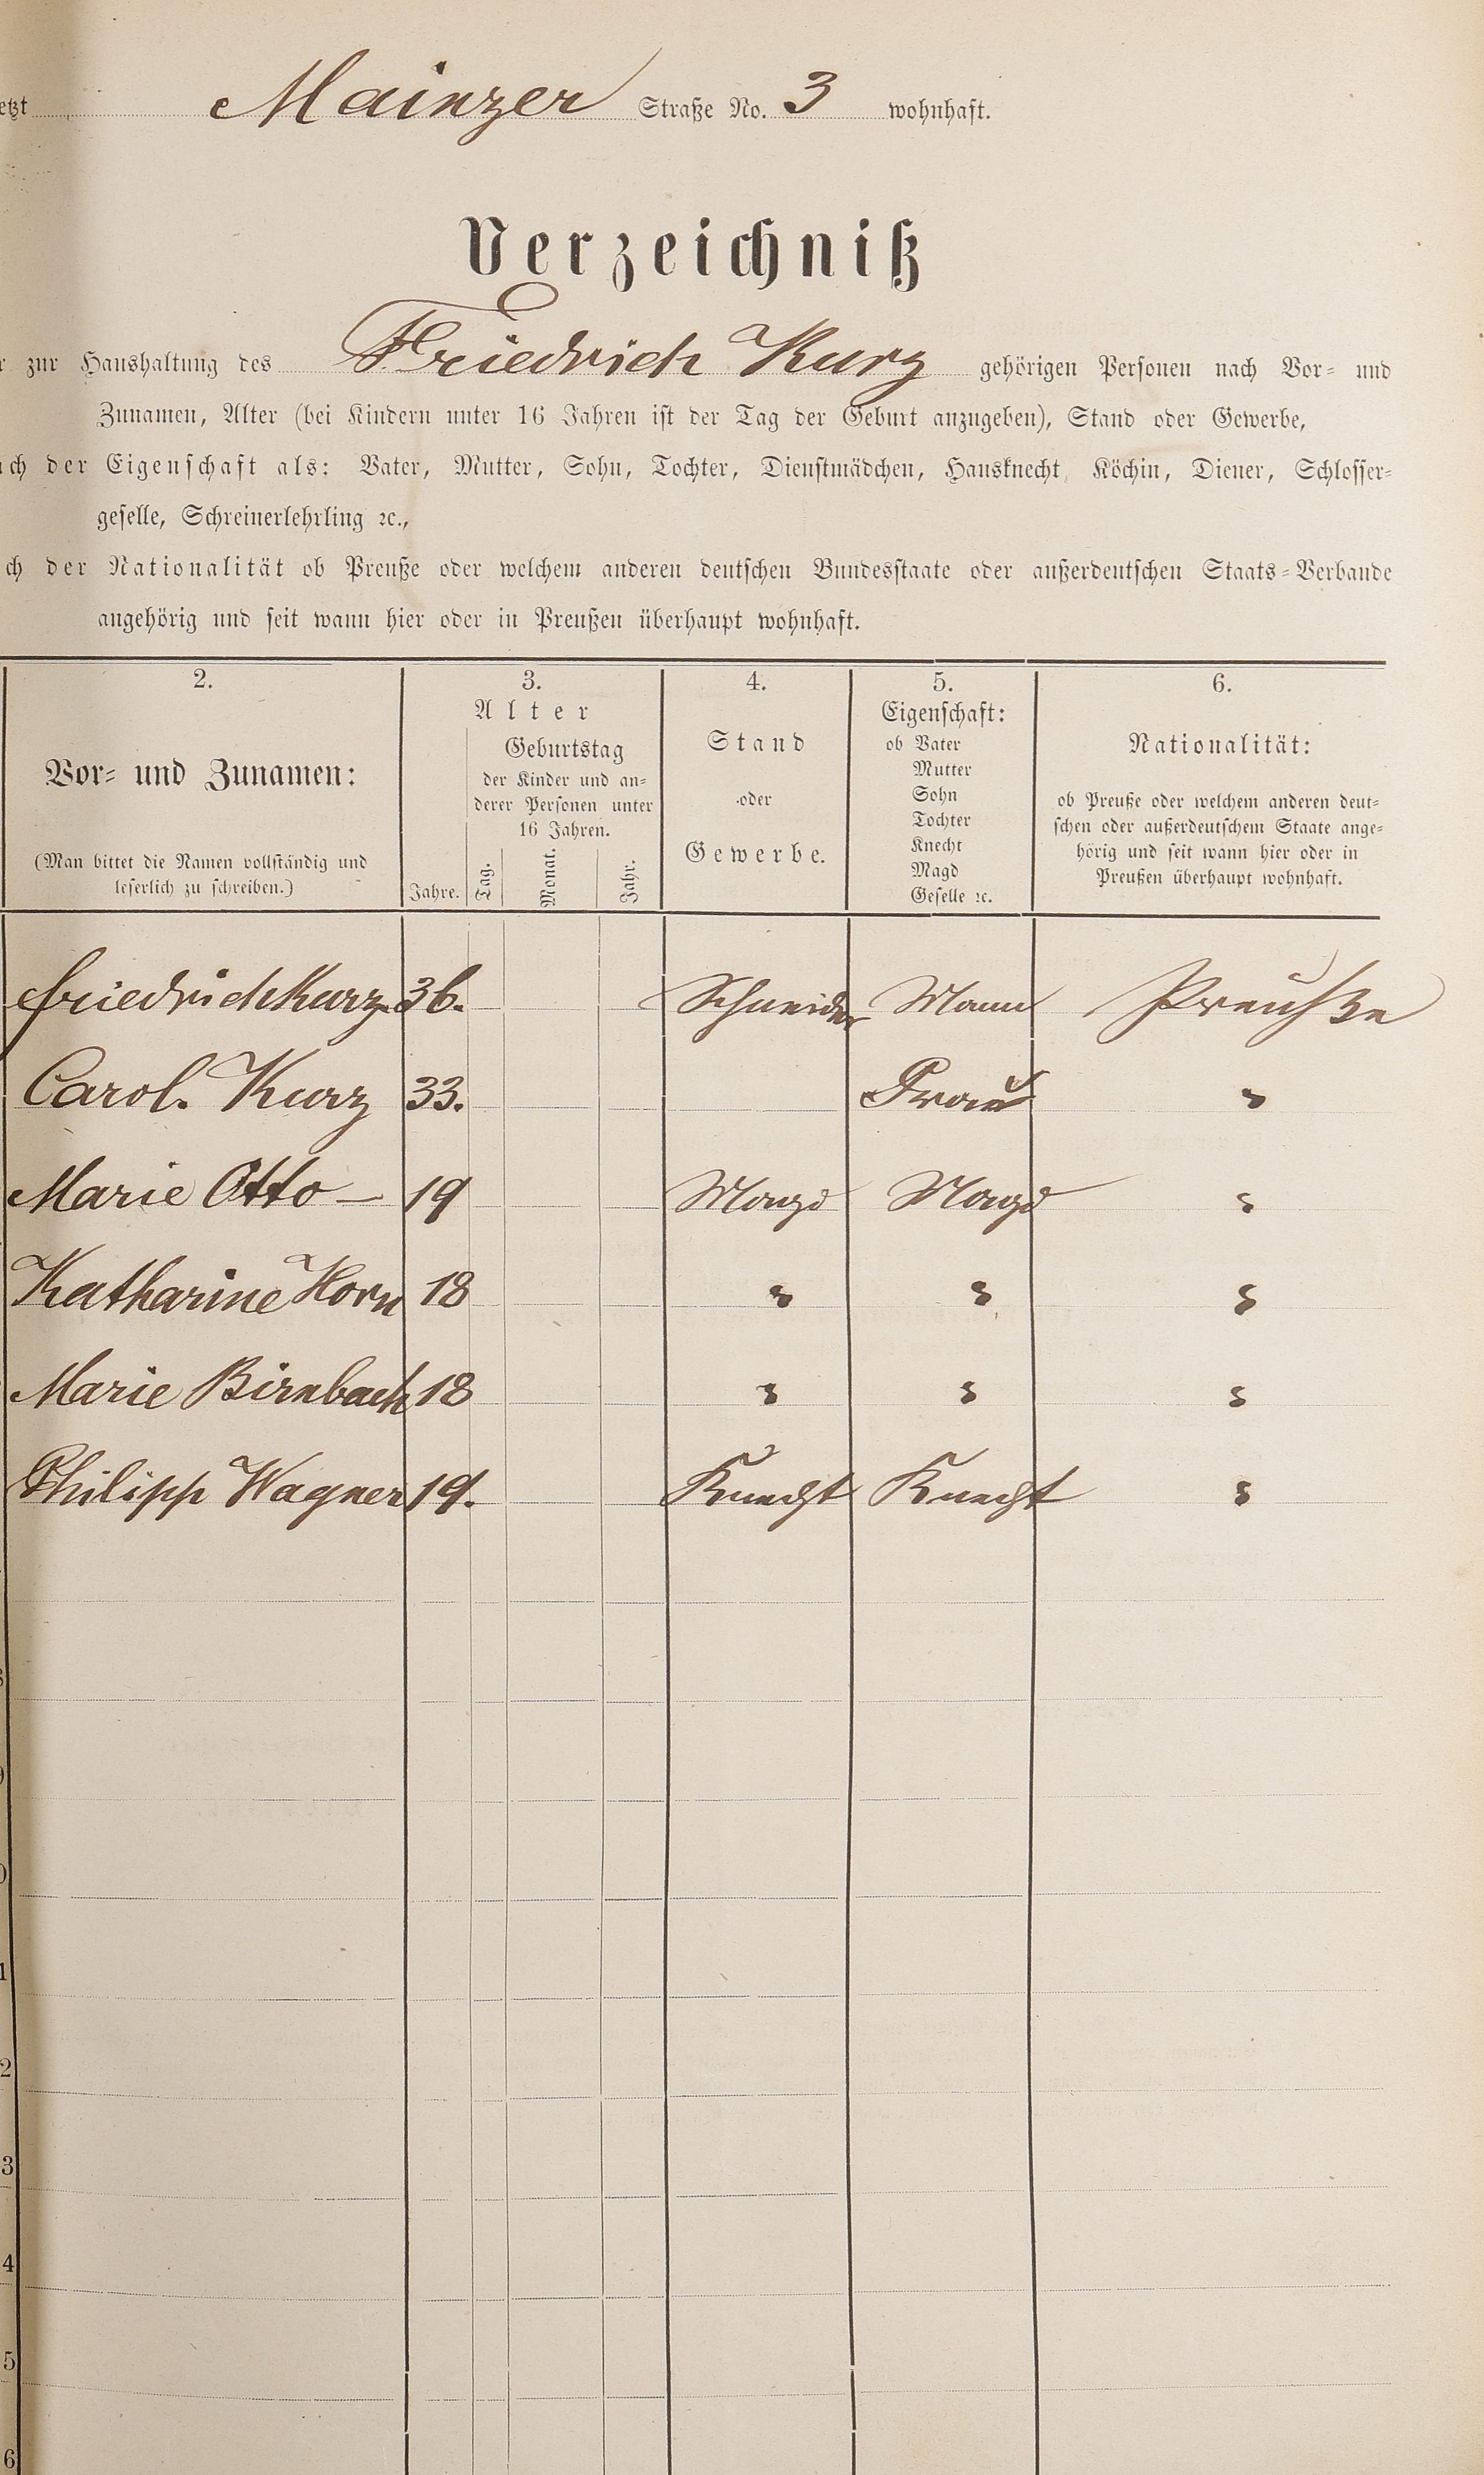 etzt Mainzer Straße No. 3 wohnhaft.
Verzeichniß
r zur Haushaltung des Friedrich Kurz gehörigen Personen nach Vor- und
Zunamen, Alter (bei Kindern unter 16 Jahren ist der Tag der Geburt anzugeben), Stand oder Gewerbe,
ch der Eigenschaft als: Vater, Mutter, Sohn, Tochter, Dienstmädchen, Hausknecht, Köchin, Diener, Schlosser-
geselle, Schreinerlehrling ꝛc.,
ch der Nationalität ob Preuße oder welchem anderen deutschen Bundesstaate oder außerdeutschen Staats-Verbande
angehörig und seit wann hier oder in Preußen überhaupt wohnhaft.
2. 3. 4. 5. 6.
Vor- und Zunamen:
(Man bittet die Namen vollständig und
leserlich zu schreiben.)
Alter
Geburtstag
der Kinder und an-
derer Personen unter
16 Jahren.
Jahre. Tag. Monat. Jahr.
Stand
oder
Gewerbe.
Eigenschaft:
ob Vater
Mutter
Sohn
Tochter
Knecht
Magd
Geselle ꝛc.
Nationalität:
ob Preuße oder welchem anderen deut-
schen oder außerdeutschem Staate ange-
hörig und seit wann hier oder in
Preußen überhaupt wohnhaft.
Friedrich Kurz 36. Schneider Mann Preuße
Carol. Kurz 33. Frau "
Marie Otto — 19 Magd Magd "
Katharine Horn 18 " " "
Marie Birnbach 18 " " "
Philipp Wagner 19. Knecht Knecht "
1
2
3
4
5
6